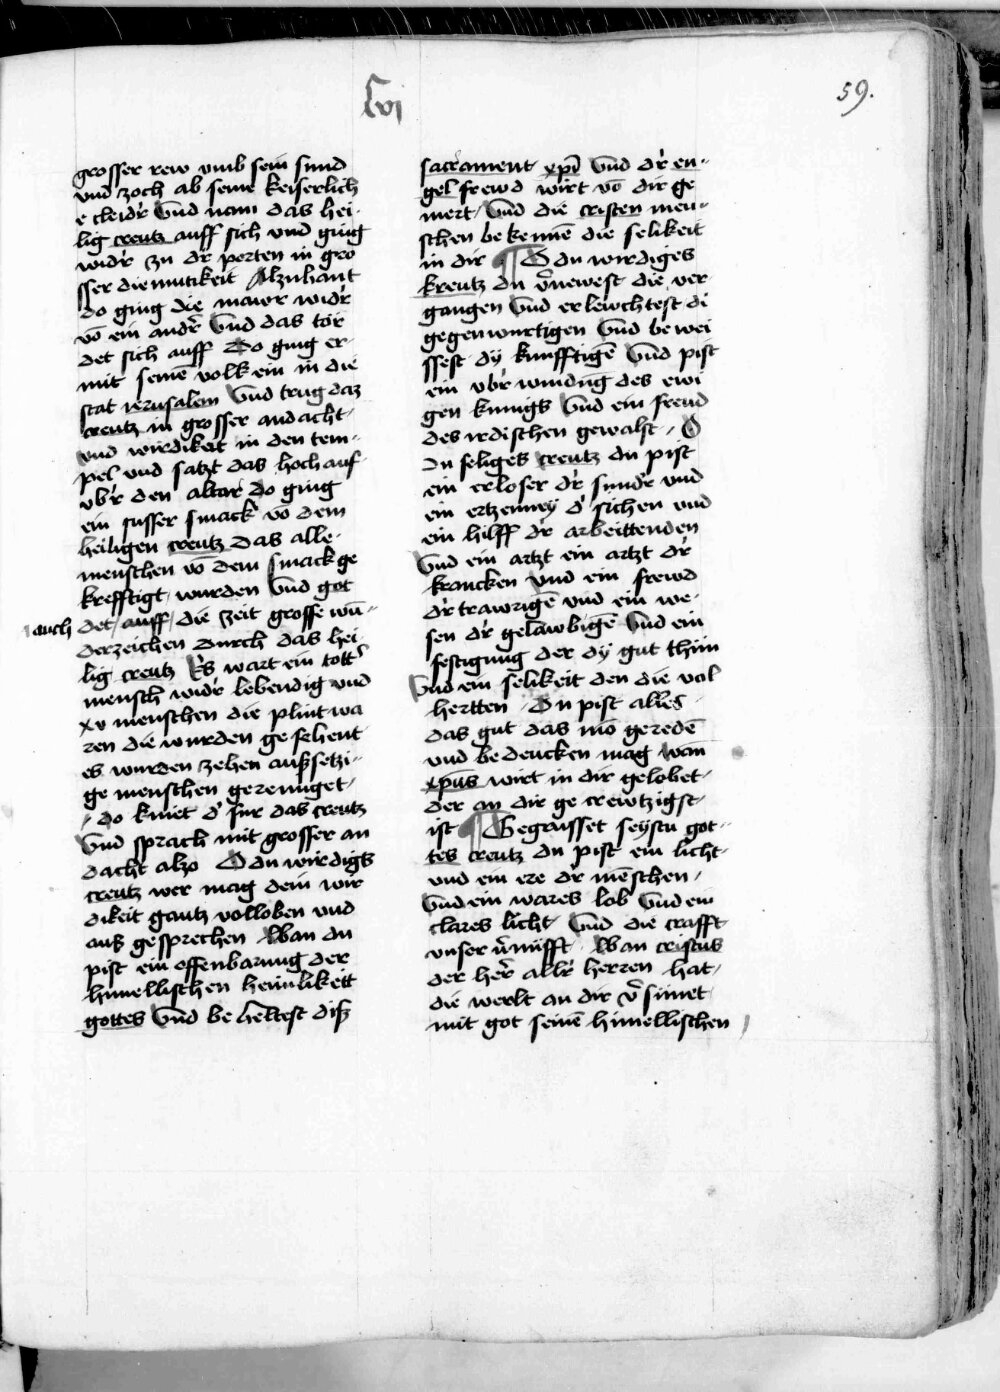 Lvi
59.
grosser rew vmb sein sund
vnd zoch ab seine keiserlich
e cleidr̕ Vnd nam das hei-
lig creutz auff sich vnd ging
widr̕ zu dr̕ porten in gro
sser diemutikeit Alzuhant
do ging die mawr widr̕
võ ein andr̕ Vnd das tor
det sich auff Do ging er-
mit seinẽ volk ein in die
stat ierusalem Vnd trug daz
creutz in grosser andacht
vnd wirdikeit in den tem-
pel vnd satzt das hoch auf-
vbr̕ den altar Do ging
ein susser smack võ dem
heiligen creutz Das alle-
menschen võ dem smack ge
krefftigt wurden Vnd got
auch det auff die zeit grosse wũ-
derzeichen Durch das hei
lig creutz Es wart ein tott̕
mensch widr̕ lebendig vnd
xv menschen die plint wa
ren die wurden gesehent
es wurden zehen auszsetzi-
ge menschen gereiniget
do kniet d̕ fur das creutz
Vnd sprach mit grosser an
dacht also O du wirdigs
creutz wer mag dein wir
dikeit gantz volloben vnd
ausz gesprechen Wan du
pist ein offenbarung der
himellischen heimlikeit
gottes Vnd beheltest disz
sacrament xp̃i Vnd dr̕ en-
gel frewd wirt võ dir ge
mert Vnd die cristen men-
schen bekennẽ die selikeit
in dir ¶ O du wirdiges
kreutz du v̕newest die ver
gangen Vnd erlewchtest di
gegenwurtigen Vnd bewei
ssest dy̎ kunfftigẽ Vnd pist
ein vbr̕windũg des ewi
gen kunigs Vnd ein freud
des irdischen gewalst O
Du seliges creutz du pist
ein erloser dr̕ sundr̕ vnd
ein ertzenney d̕ sichen vnd
ein hilff dr̕ arbeittenden
Vnd ein artzt ein artzt dr̕
krancken vnd ein frewd
dr̕ trawrigẽ vnd ein we-
sen dr̕ gelawbigẽ Vnd ein
festigung der dy̎ gut thun
Vnd ein selikeit den die vol
hertten Du pist alles
das gut das mã geredẽ
vnd bedencken mag wan
xp̃us wirt in dir gelobet
der an dir gecrewtzigst
ist ¶ Gegrusset seystu got-
tes creutz du pist ein licht
vnd ein ere dr̕ mẽschen
Vnd ein wares lob Vnd ein
clares licht Vnd die crafft
vnser v̕nufft Wan cristus
der her̕ allr̕ herren hat
die werlt an dir v̕sunet
mit got seinẽ himellischen